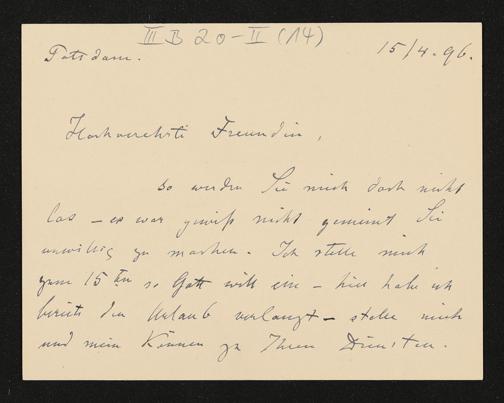 III B 20-II (14)
Potsdam. 15/4.96.
Hochverehrte Freundin,
So werden Sie mich doch nicht
los – es war gewiß nicht gemeint Sie
unwillig zu machen. Ich stelle mich
zum 15ten so Gott will ein – hier habe ich
bereits den Urlaub verlangt – stelle mich
und mein Können zu Ihren Diensten.